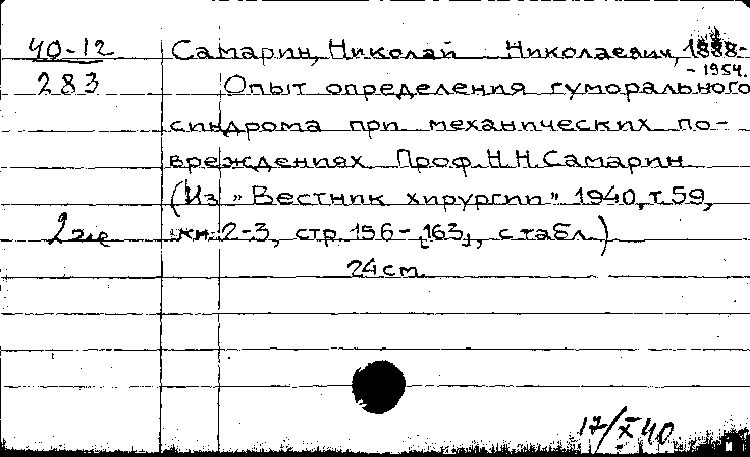 40-12
283
Самарин, Николай Николаевич, 1888-
- 1954.
Опыт определения гуморального
синдрома при механических по-
вреждениях. Проф. Н.Н. Самарин
(Из „Вестник хирургии" 1940, т. 59,
2 экз
кн. 2-3, стр. 156-[163], с табл.)
24 см.
17/X 40